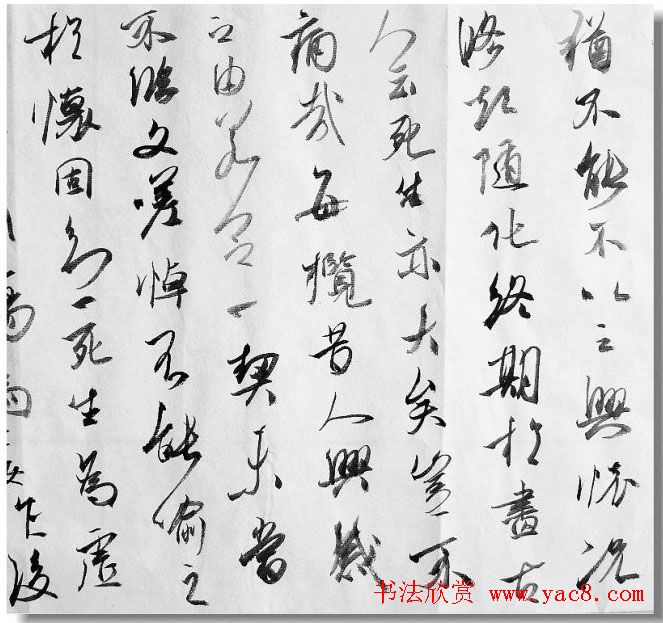 猶不能不以之興懷况
脩短随化終期於盡古
人云死生亦大矣豈不
痛哉每攬昔人興感
之由若合一契未嘗
不臨文嗟悼不能喻之
於懷固知一死生為虛
後
书法欣赏 www.yac8.com